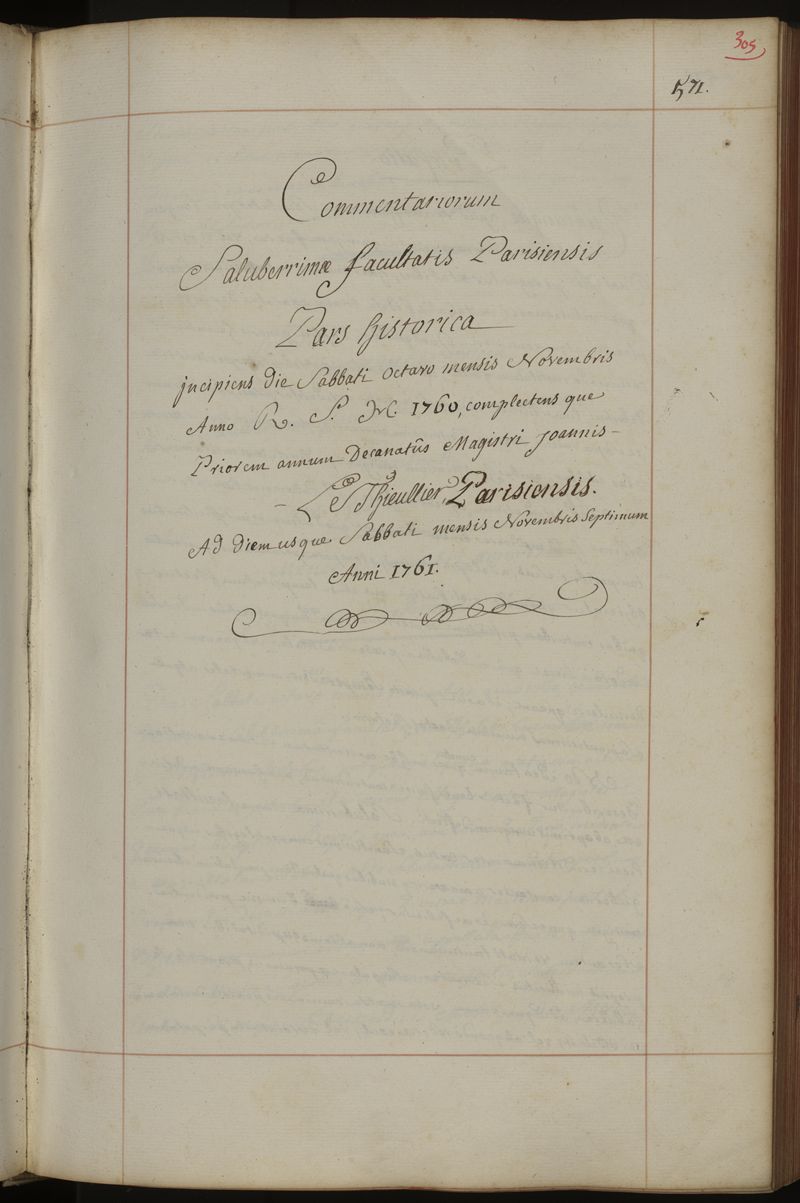 305
571.
Commentariorum
Saluberrimæ facultatis Parisiensis
Pars historica
incipiens die Sabbati octavo mensis Novembris
Anno R. S. M. 1760, complectens que
Priorem annum Decanatûs Magistri Joannis-
- Le Thieullier, Parisiensis.
Ad diem usque Sabbati mensis Novembris Septimum
Anni 1761.